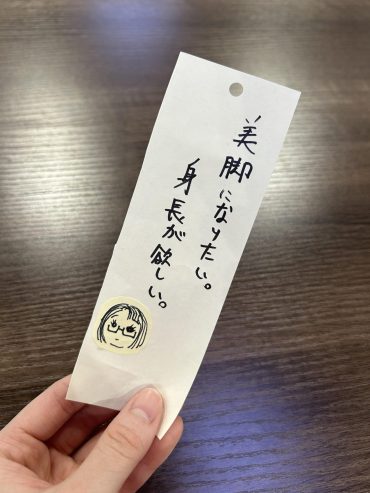 美脚になりたい。
身長が欲しい。